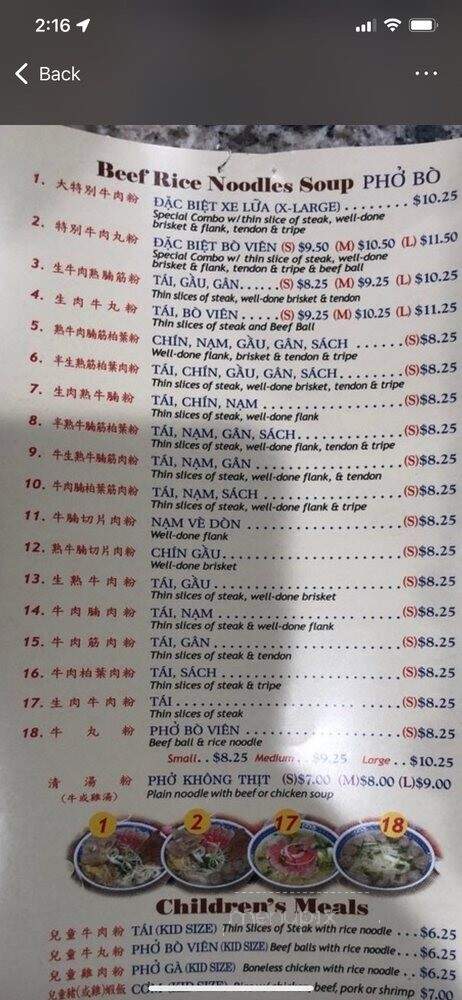 2:16
Back
Beef Rice Noodles Soup PHỞ BÒ
1. 大特別牛肉粉 ĐẶC BIỆT XE LỬA (X-LARGE) ........ $10.25
Special Combo w/ thin slice of steak, well-done
brisket & flank, tendon & tripe
2. 特別牛肉丸粉 ĐẶC BIỆT BÒ VIÊN (S) $9.50 (M) $10.50 (L) $11.50
Special Combo w/ thin slice of steak, well-done
brisket & flank, tendon & tripe & beef ball
3. 生牛肉熟腩筋粉 TÁI, GẦU, GÂN......(S) $8.25 (M) $9.25 (L) $10.25
Thin slices of steak, well-done brisket & tendon
4. 生肉牛丸粉 TÁI, BÒ VIÊN .....(S) $9.25 (M) $10.25 (L) $11.25
Thin slices of steak and Beef Ball
5. 熟牛肉腩筋柏葉粉 CHÍN, NẠM, GẦU, GÂN, SÁCH ......(S)$8.25
Well-done flank, brisket & tendon & tripe
6. 半生熟筋柏葉肉粉 TÁI, CHÍN, GẦU, GÂN, SÁCH........(S)$8.25
Thin slices of steak, well-done brisket, tendon & tripe
7. 生肉熟牛腩粉 TÁI, CHÍN, NẠM ..................(S)$8.25
Thin slices of steak, well-done flank
8. 半熟牛腩筋柏葉粉 TÁI, NẠM, GÂN, SÁCH.............(S)$8.25
Thin slices of steak, well-done flank, tendon & tripe
9. 牛生熟腩筋肉粉 TÁI, NẠM, GÂN ..................(S)$8.25
Thin slices of steak, well-done flank, & tendon
10. 牛肉腩柏葉筋肉粉 TÁI, NẠM, SÁCH .................(S)$8.25
Thin slices of steak, well-done flank & tripe
11. 牛腩切片肉粉 NẠM VÈ DÒN ...................(S)$8.25
Well-done flank
12. 熟牛腩切片肉粉 CHÍN GẦU......................(S)$8.25
Well-done brisket
13. 生熟牛肉粉 TÁI, GẦU .......................(S)$8.25
Thin slices of steak, well-done brisket
14. 牛肉腩肉粉 TÁI, NẠM .......................(S)$8.25
Thin slices of steak & well-done flank
15. 牛肉筋肉粉 TÁI, GÂN........................(S)$8.25
Thin slices of steak & tendon
16. 牛肉柏葉肉粉 TÁI, SÁCH ......................(S)$8.25
Thin slices of steak & tripe
17. 生肉牛肉粉 TÁI ............................(S)$8.25
Thin slices of steak
18. 牛丸粉 PHỞ BÒ VIÊN ....................(S)$8.25
Beef ball & rice noodle
Small.. $8.25 Medium.. $9.25 Large.. $10.25
清湯粉 PHỞ KHÔNG THỊT (S)$7.00 (M)$8.00 (L)$9.00
(牛或雞湯) Plain noodle with beef or chicken soup
1 2 17 18
menupix
Children's Meals
兒童牛肉粉 TÁI (KID SIZE) Thin Slices of Steak with rice noodle ...$6.25
兒童牛丸粉 PHỞ BÒ VIÊN (KID SIZE) Beef balls with rice noodle...$6.25
兒童雞肉粉 PHỞ GÀ (KID SIZE) Boneless chicken with rice noodle..$6.25
兒童豬(或雞)蝦飯 CƠM (KID SIZE) beef, pork or shrimp $7.00